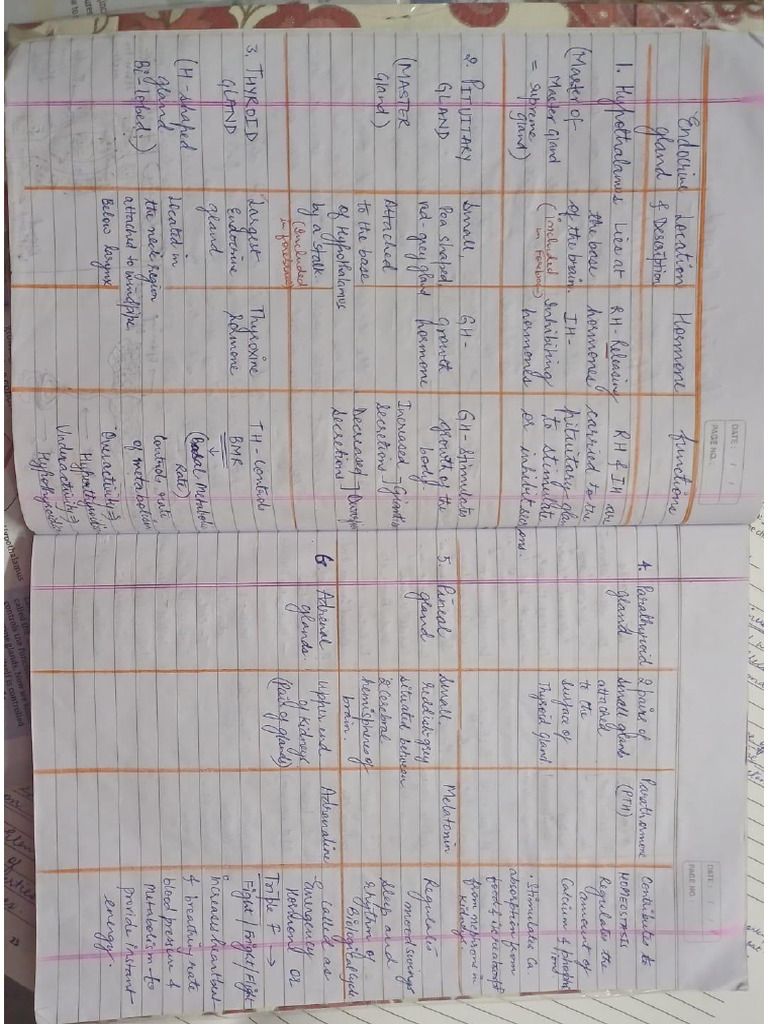 DATE: / /
PAGE NO.:
Endocrine gland
Location & Description
Hormone
functions
1. Hypothalamus
(Master of
Master Gland
= Supreme
gland)
Lies at
the base
of the brain.
(included
in forebrain)
RH - Releasing
hormones
IH -
Inhibiting
hormones
RH & IH are
carried to the
pituitary-gland
to stimulate
or inhibit
2. PITUITARY
GLAND
(MASTER
Gland)
Small,
Pea shaped
red-grey gland
Attached
to the base
of Hypothalamus
by a stalk
(Included
in forebrain)
GH -
Growth
hormone
GH - Stimulates
growth of the
body.
Increased
secretions
Decreased
Secretions
3. THYROID
GLAND
(H-shaped
gland
Bi-lobed)
Largest
Endocrine
gland
Located in
the neck region
attached to windpipe
Below larynx
Thyroxine
hormone
TH - Controls
BMR
↓
(Basal Metabolic
Rate)
Controls rate
of metabolism
Overactivity ⇒
Hyperthyroidism
Underactivity ⇒
Hypothyroidism
DATE: / /
PAGE NO.:
4. Parathyroid
gland
2 pairs of
small glands
attached
to the
surface of
Thyroid gland
Parathormone
(PTH)
Contributes to
HOMEOSTASIS
Regulates the
amount of
Calcium & phosphate
ions
• Stimulates Ca
absorption from
food & its reabsorb
from nephrons in
kidney.
5. Pineal
gland
Small
Reddish-grey
situated between
2 cerebral
hemispheres of
brain.
Melatonin
Regulates
mood swings
sleep and
Rhythm of
Biological cycle
6. Adrenal
glands.
Upper end
of kidneys
(Pair of glands)
Adrenaline
called as
Emergency
Hormone or
Triple F →
Fight / Fright / Flight
increases heartbeat
& breathing rate
blood pressure &
Metabolism to
provide instant
energy.
23